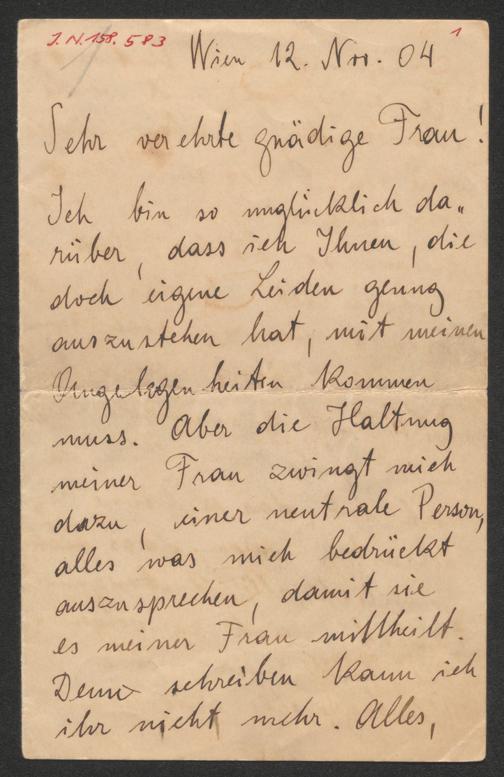 J.N. 158.583
1
Wien 12. Nov. 04
Sehr verehrte gnädige Frau!
Ich bin so unglücklich da„
rüber, dass ich Ihnen, die
doch eigene Leiden genug
auszustehen hat, mit meinen
Angelegenheiten kommen
muss. Aber die Haltung
meiner Frau zwingt mich
dazu, einer neutrale Person,
alles was mich bedrückt
auszusprechen, damit sie
es meiner Frau mittheilt.
Denn schreiben kann ich
ihr nicht mehr. Alles,